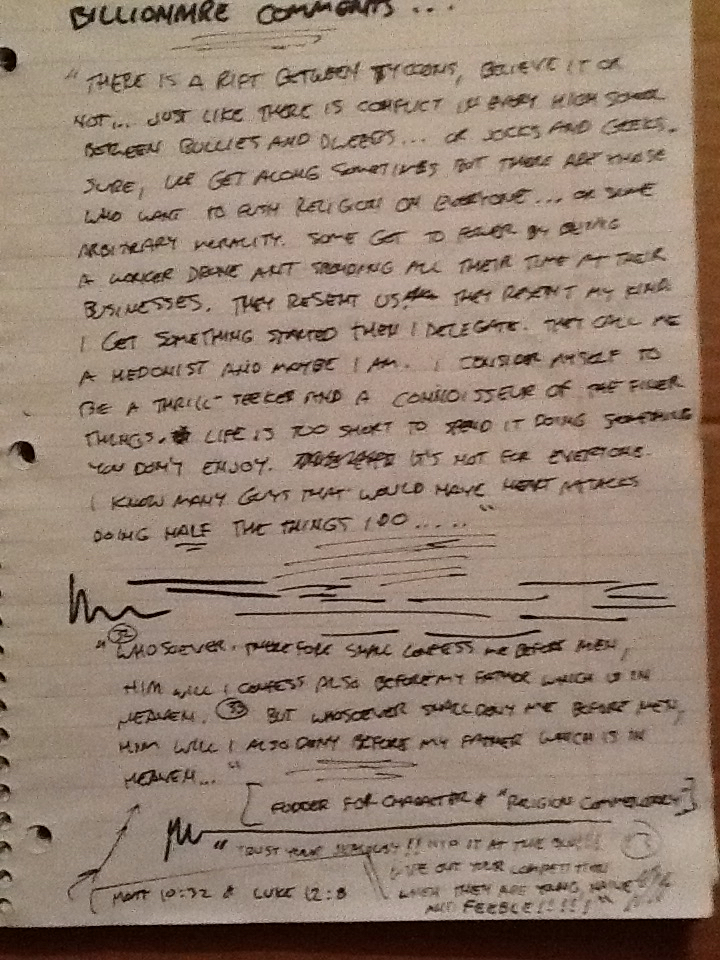 BILLIONAIRE COMMENTS...
"THERE IS A RIFT BETWEEN TYCOONS, BELIEVE IT OR
NOT... JUST LIKE THERE IS CONFLICT IN EVERY HIGH SCHOOL
BETWEEN BULLIES AND DWEEBS... OR JOCKS AND GEEKS.
SURE, WE GET ALONG SOMETIMES BUT THERE ARE THOSE
WHO WANT TO PUSH RELIGION ON EVERYONE... OR SOME
ARBITRARY MORALITY. SOME GET TO POWER BY BEING
A WORKER DRONE ANT SPENDING ALL THEIR TIME AT THEIR
BUSINESSES. THEY RESENT US. THEY RESENT MY KIND
I GET SOMETHING STARTED THEN I DELEGATE. THEY CALL ME
A HEDONIST AND MAYBE I AM. I CONSIDER MYSELF TO
BE A THRILL-SEEKER AND A CONNOISSEUR OF THE FINER
THINGS. LIFE IS TOO SHORT TO SPEND IT DOING SOMETHING
YOU DON'T ENJOY. IT'S NOT FOR EVERYONE.
I KNOW MANY GUYS THAT WOULD HAVE HEART ATTACKS
DOING HALF THE THINGS I DO....."
"32 WHOSOEVER THEREFORE SHALL CONFESS ME BEFORE MEN,
HIM WILL I CONFESS ALSO BEFORE MY FATHER WHICH IS IN
HEAVEN. 33 BUT WHOSOEVER SHALL DENY ME BEFORE MEN,
HIM WILL I ALSO DENY BEFORE MY FATHER WHICH IS IN
HEAVEN..."
[FODDER FOR CHARACTER & "RELIGION COMMENTARY"]
"TRUST YOUR JEALOUSY!! NIP IT AT THE BUD!!!
OUT YOUR COMPETITION
WHEN THEY ARE YOUNG, NAIVE
AND FEEBLE!!!!"
MATT 10:32 & LUKE 12:8